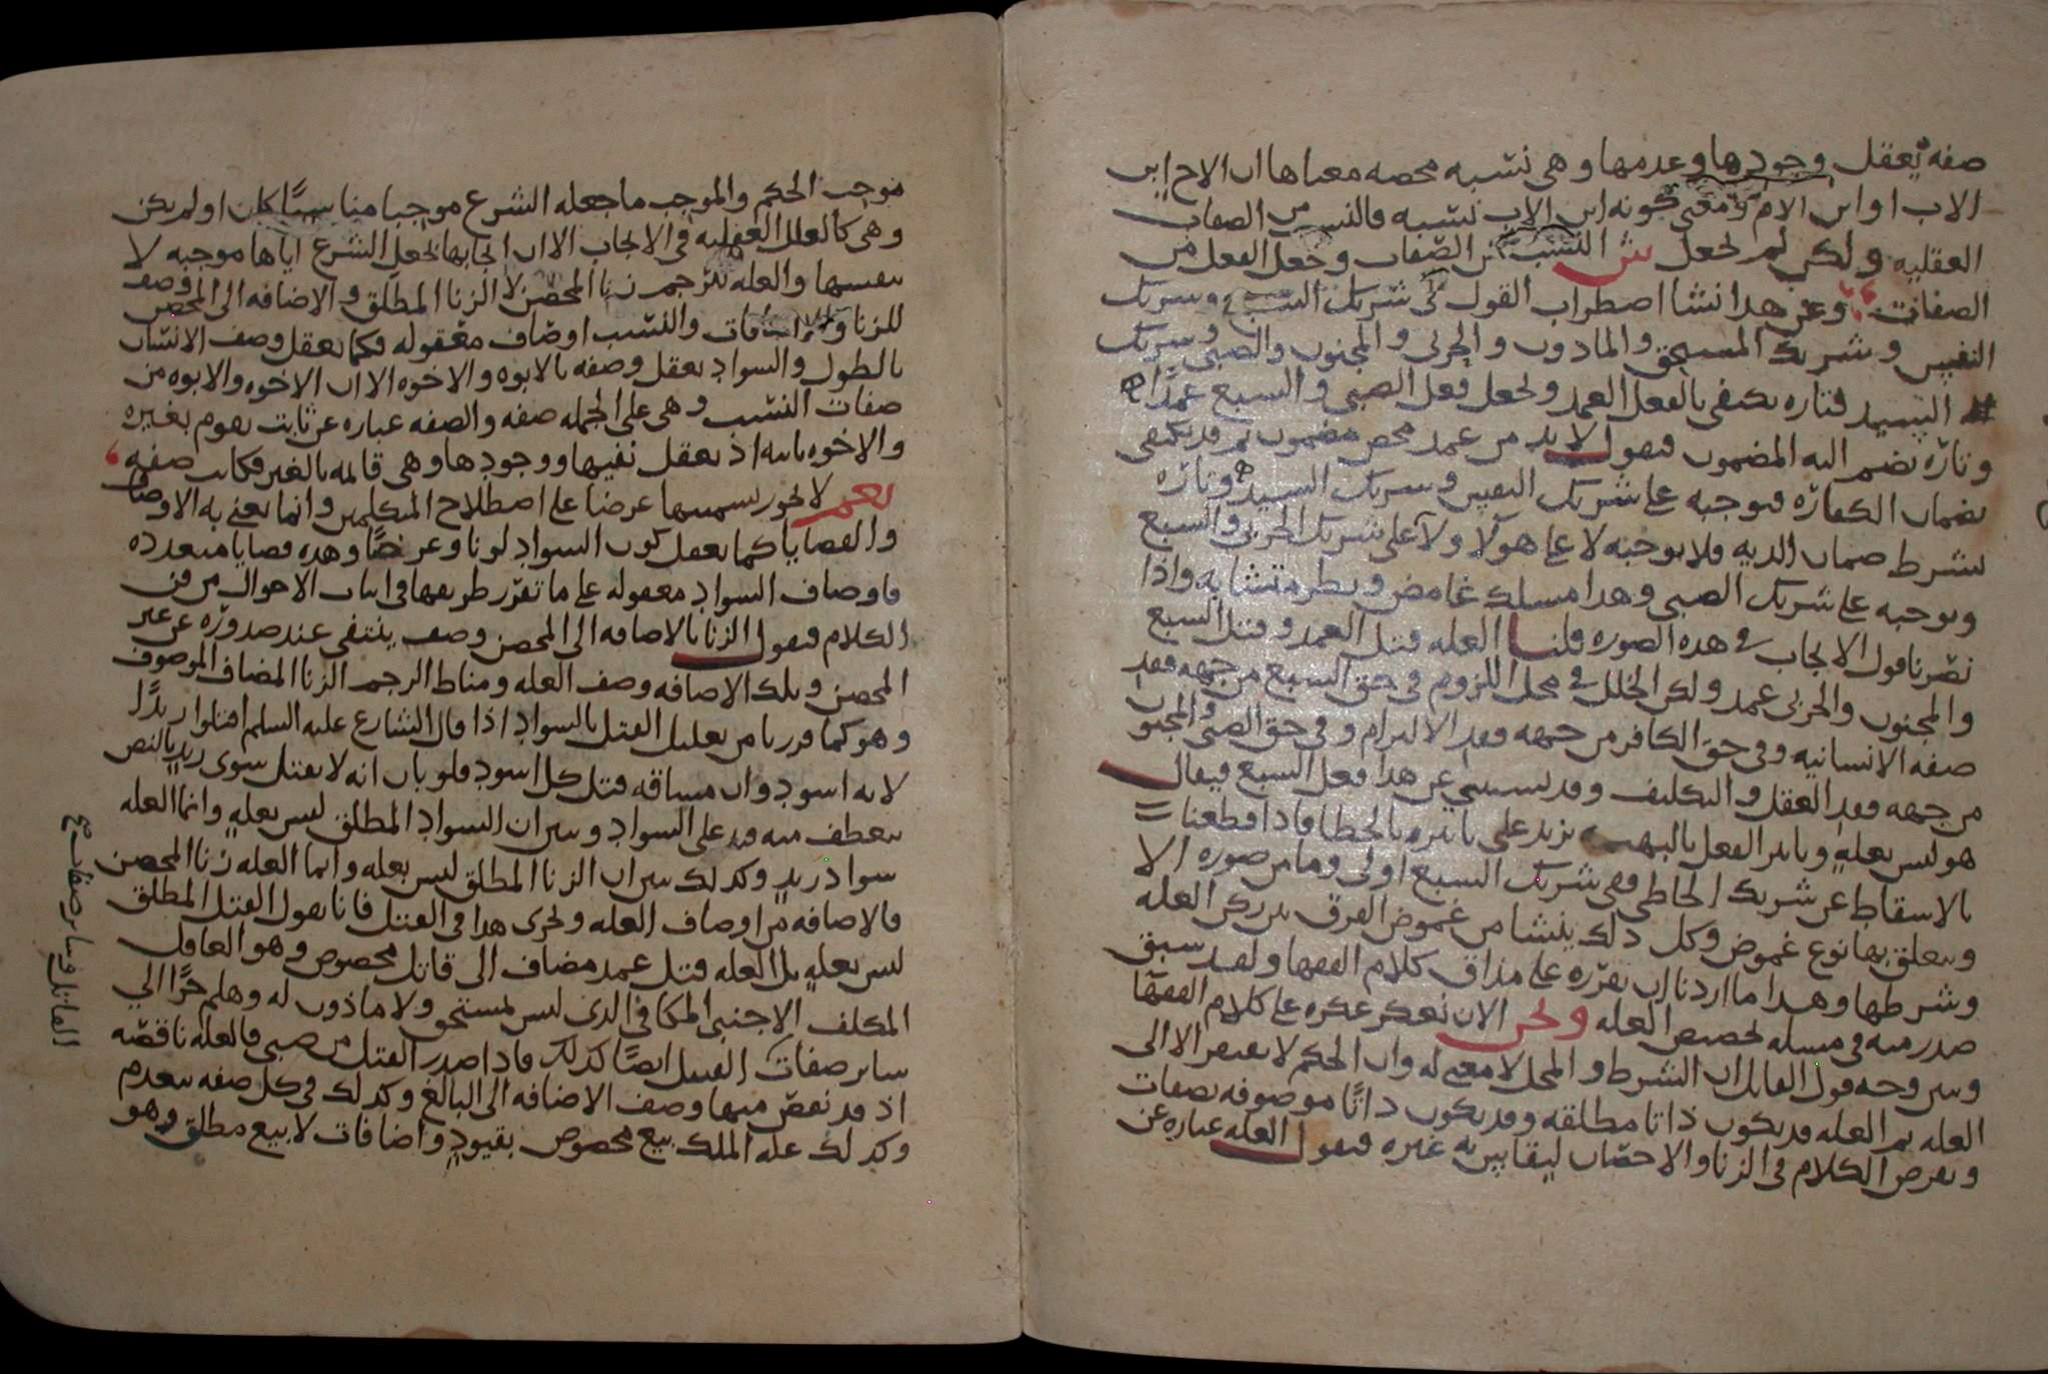 صفه يعقل وجودها وعدمها وهى نسبه محصه معناها ان الاح ابن
الاب او ابن الام ومعنى كونه ابن الاب نسبه فالنسب من الصفات
العقليه ولكن لم تجعل ش النسب من الصفات وجعل الفعل من
الصفات وعن هدا نشا اصطراب القول فى شريك السبع وشريك
النفس وشريك المستحق والمادون والحربى والمجنون والصبى وشريك
السيد فتاره يكتفى بالفعل العمد وتجعل فعل الصبى والسبع عمدا
وتاره يضم اليه المضمون فنقول لابد من عمد محص مضمون ثم قد يكتفى
بضمان الكفاره فيوجبه على شريك النفس وشريك السيد وتاره
يشرط ضمان الديه فلا يوجبه لا على هولا ولا على شريك الحربى والسبع
ويوجبه على شريك الصبى وهدا مسلك غامض ونظر متشابه واذا
نصرنا قول الايجاب فى هده الصوره قلنا العله قتل العمد وقتل السبع
والمجنون والحربى عمد ولكن الخلل فى محل اللزوم فى حق السبع من جهه فقد
صفه الانسانيه وفى حق الكافر من جهه فقد الالتزام وفى حق الصبى والمجنون
من جهه فقد العقل والتكليف وقد يستثنى عن هدا فعل السبع فيقال
هو ليس بعله وتاثر الفعل بالبهيمه يزيد على تاثره بالخطا فاذا قطعنا
بالاسقاط عن شريك الخاطى ففى شريك السبع اولى وما من صوره الا
ويتعلق بها نوع غموض وكل دلك ينشا من غموض الفرق بين ركن العله
وشرطها وهدا ما اردنا ان نقرره على مذاق كلام الفقها ولقد سبق
صدر منه فى مسله تخصيص العله ونحن الان نعكر عكره على كلام الفقها
ونبين وجه قول القايل ان الشرط والمحل لا معنى له وان الحكم لا يفتقر الا الى
العله ثم العله قد يكون ذاتا مطلقه وقد يكون ذاتا موصوفه بصفات
ونفرض الكلام فى الزنا والاحصان ليقايس به غيره فنقول العله عباره عن
موجب الحكم والموجب ما جعله الشرع موجبا مناسبا كان او لم يكن
وهى كالعلل العقليه فى الايجاب الا ان ايجابها بجعل الشرع اياها موجبه لا
بنفسها والعله للرجم زنا المحصن لا الزنا المطلق والاضافه الى المحصن وصف
للزنا والاضافات والنسب اوصاف معقوله فكما يعقل وصف الانسان
بالطول والسواد يعقل وصفه بالابوه والاخوه الا ان الاخوه والابوه من
صفات النسب وهى على الجمله صفه والصفه عباره عن ثابت يقوم بغيره
والاخوه ثابته اذ يعقل نفيها ووجودها وهى قايمه بالغير فكانت صفه
نعم لا يجوز تسميتها عرضا على اصطلاح المتكلمين وانما نعنى به الاوصاف
والقضايا كما يعقل كون السواد لونا وعرضا وهده قضايا متعدده
فاوصاف السواد معقوله على ما تقرر طريقها فى اثبات الاحوال من فن
الكلام فنقول الزنا بالاضافه الى المحصن وصف ينتفى عند صدوره عن غير
المحصن وتلك الاضافه وصف العله ومناط الرجم الزنا المضاف الموصوف
وهو كما قررنا من تعليل القتل بالسواد اذا قال الشارع عليه السلم اقتلوا زيدا
لانه اسود وان مساقه قتل كل اسود فلو بان انه لا يقتل سوى زيد بالنص
ينعطف منه قيد على السواد وتبين ان السواد المطلق ليس بعله وانما العله
سواد زيد وكدلك تبين ان الزنا المطلق ليس بعله وانما العله زنا المحصن
فالاضافه من اوصاف العله ويجرى هدا فى القتل فانا نقول القتل المطلق
ليس بعله بل العله قتل عمد مضاف الى قاتل مخصوص وهو العاقل
المكلف الاجنبى المكافى الدى ليس بمستحق ولا ماذون له وهلم جرا الى
ساير صفات القتيل ايضا كدلك فاذا صدر القتل من صبى فالعله ناقصه
اذ قد نقص منها وصف الاضافه الى البالغ وكدلك فى كل صفه تنعدم
وكدلك عله الملك بيع مخصوص بقيود واضافات لا بيع مطلق وهو
القاتل وساير صفات